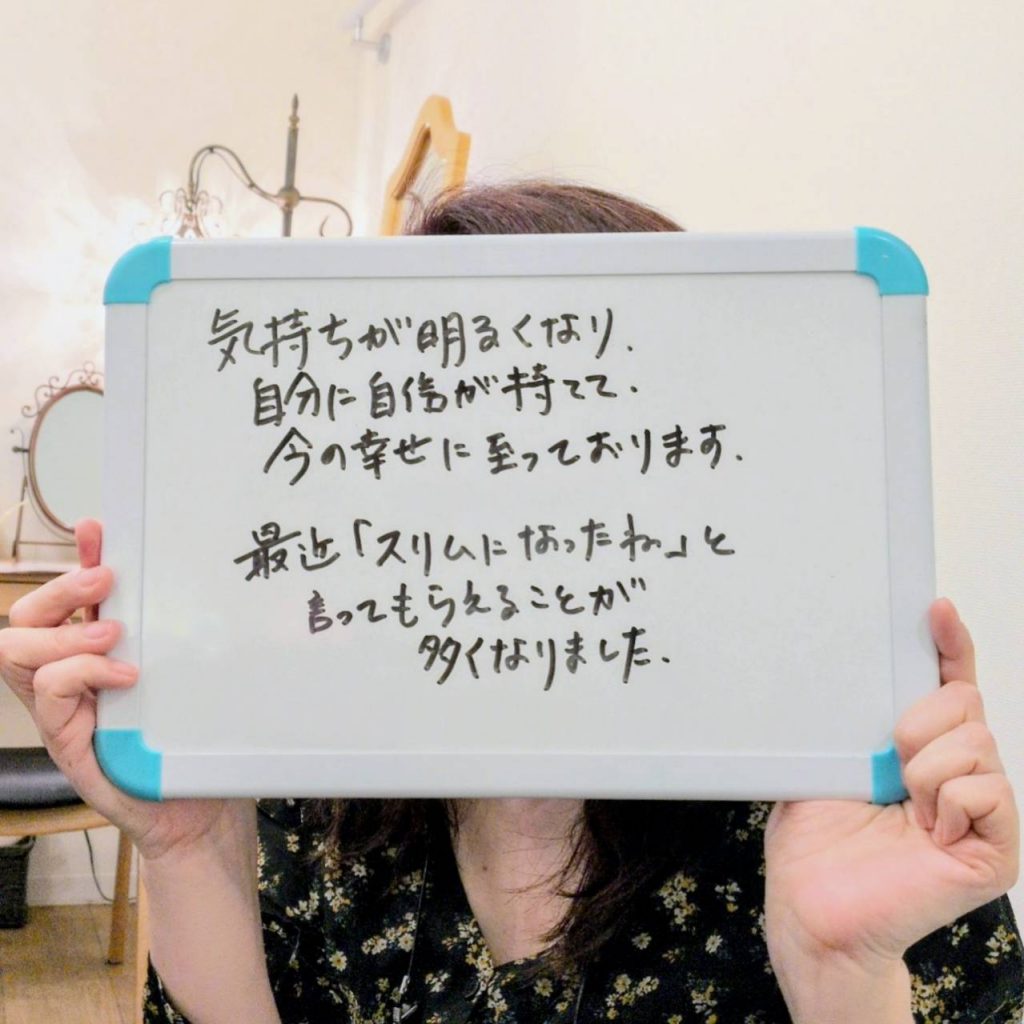 気持ちが明るくなり.
自分に自信が持てて.
今の幸せに至っております.
最近「スリムになったね」と
言ってもらえることが
多くなりました.